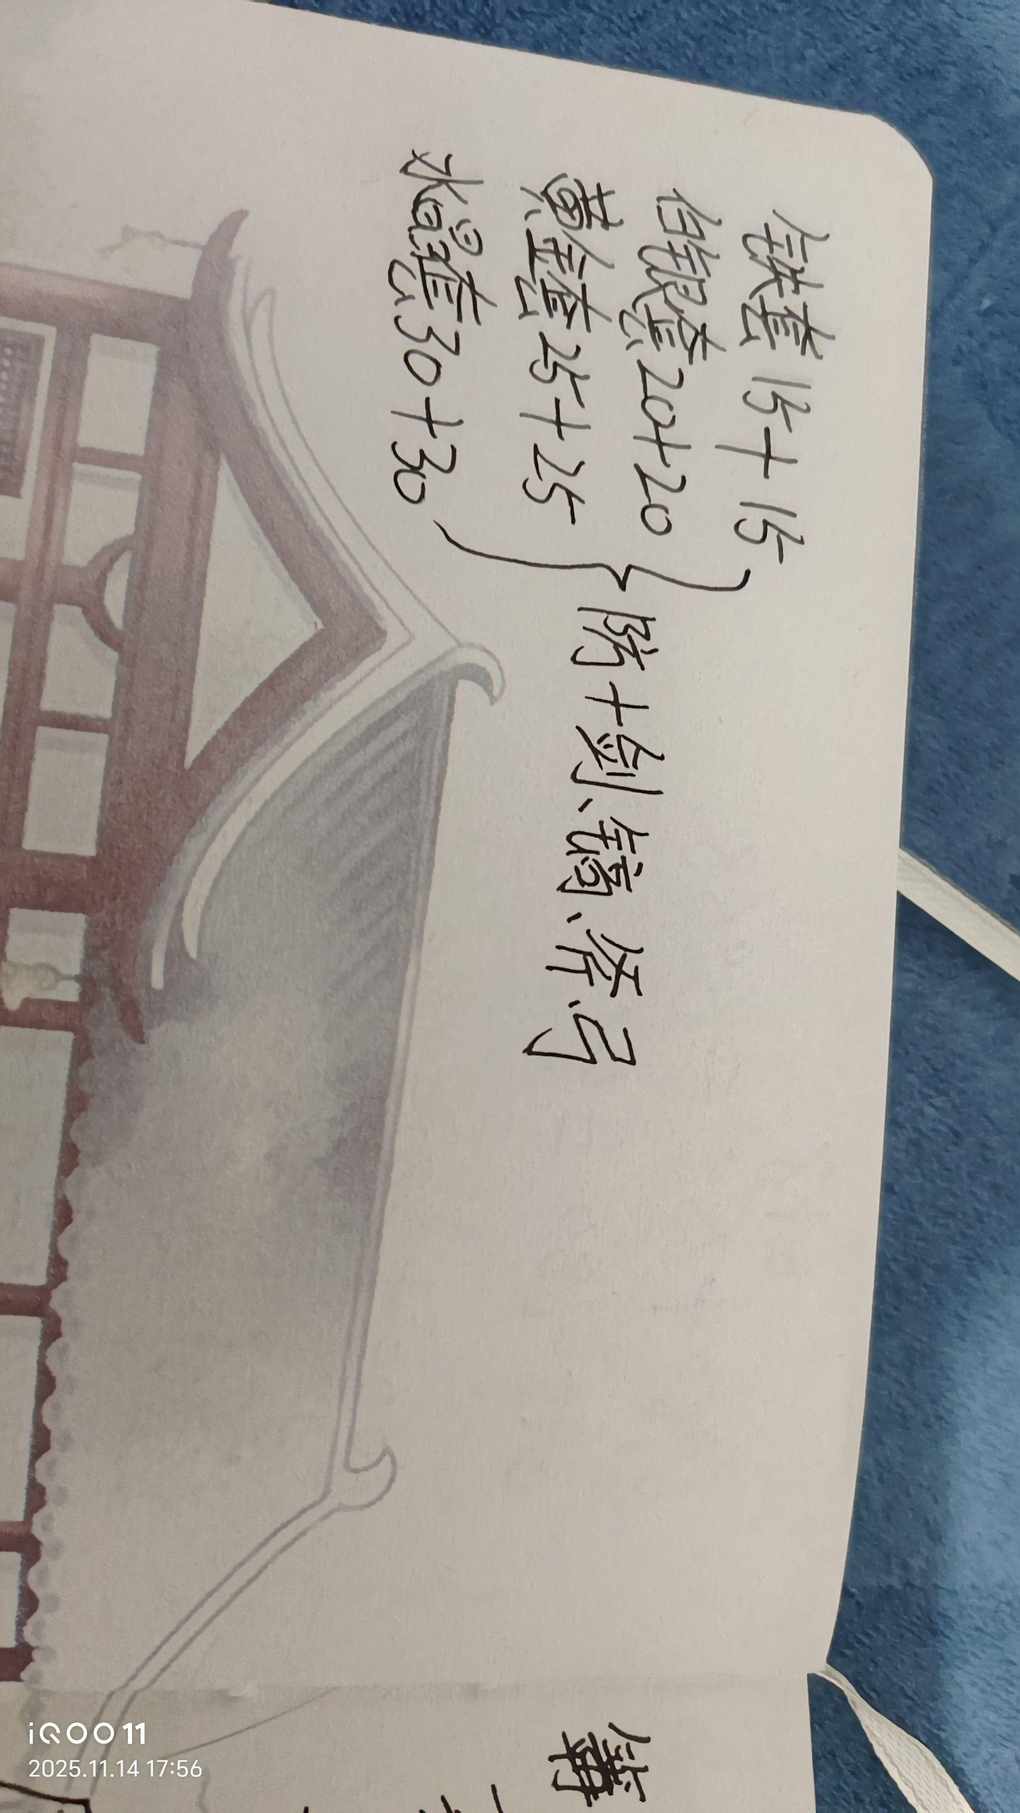 铁套15+15
白银套20+20
黄金套25+25
水晶套30+30
防+剑、镐、斧、弓
iQOO 11
2025.11.14 17:56